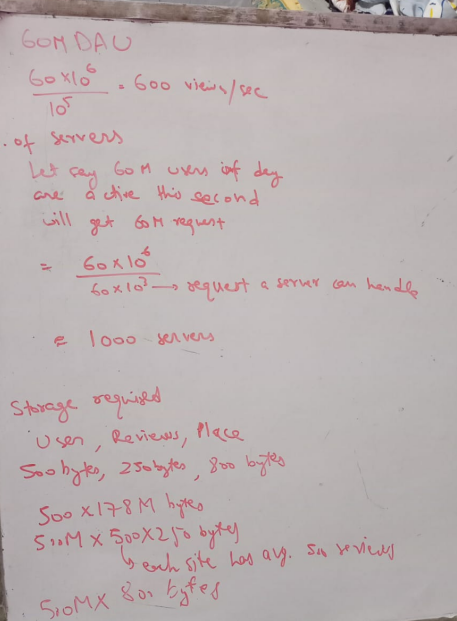 60M DAU
60 x 10^6 / 10^5 = 600 views/sec
. of servers
Let say 60 M users of day
are active this second
will get 60M request
= 60 x 10^6 / 60 x 10^3 → request a server can handle
= 1000 servers
Storage required
User, Reviews, Place
500 bytes, 250 bytes, 800 bytes
500 x 178 M bytes
500M x 500 x 250 bytes
↳ each site has avg. 500 reviews
500M x 800 bytes